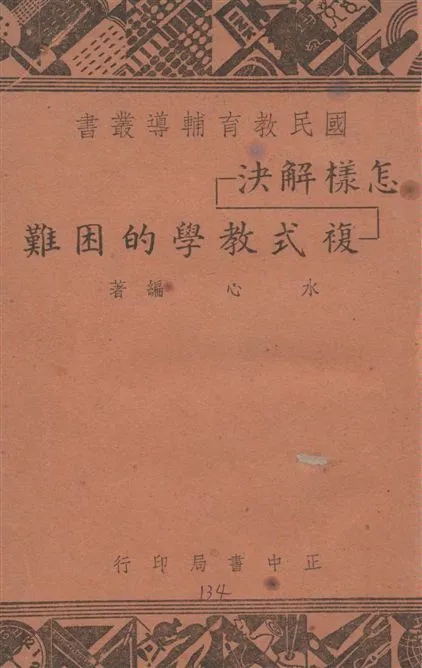 國民教育輔導叢書
怎樣解決
複式教學的困難
水心編著
正中書局印行
134